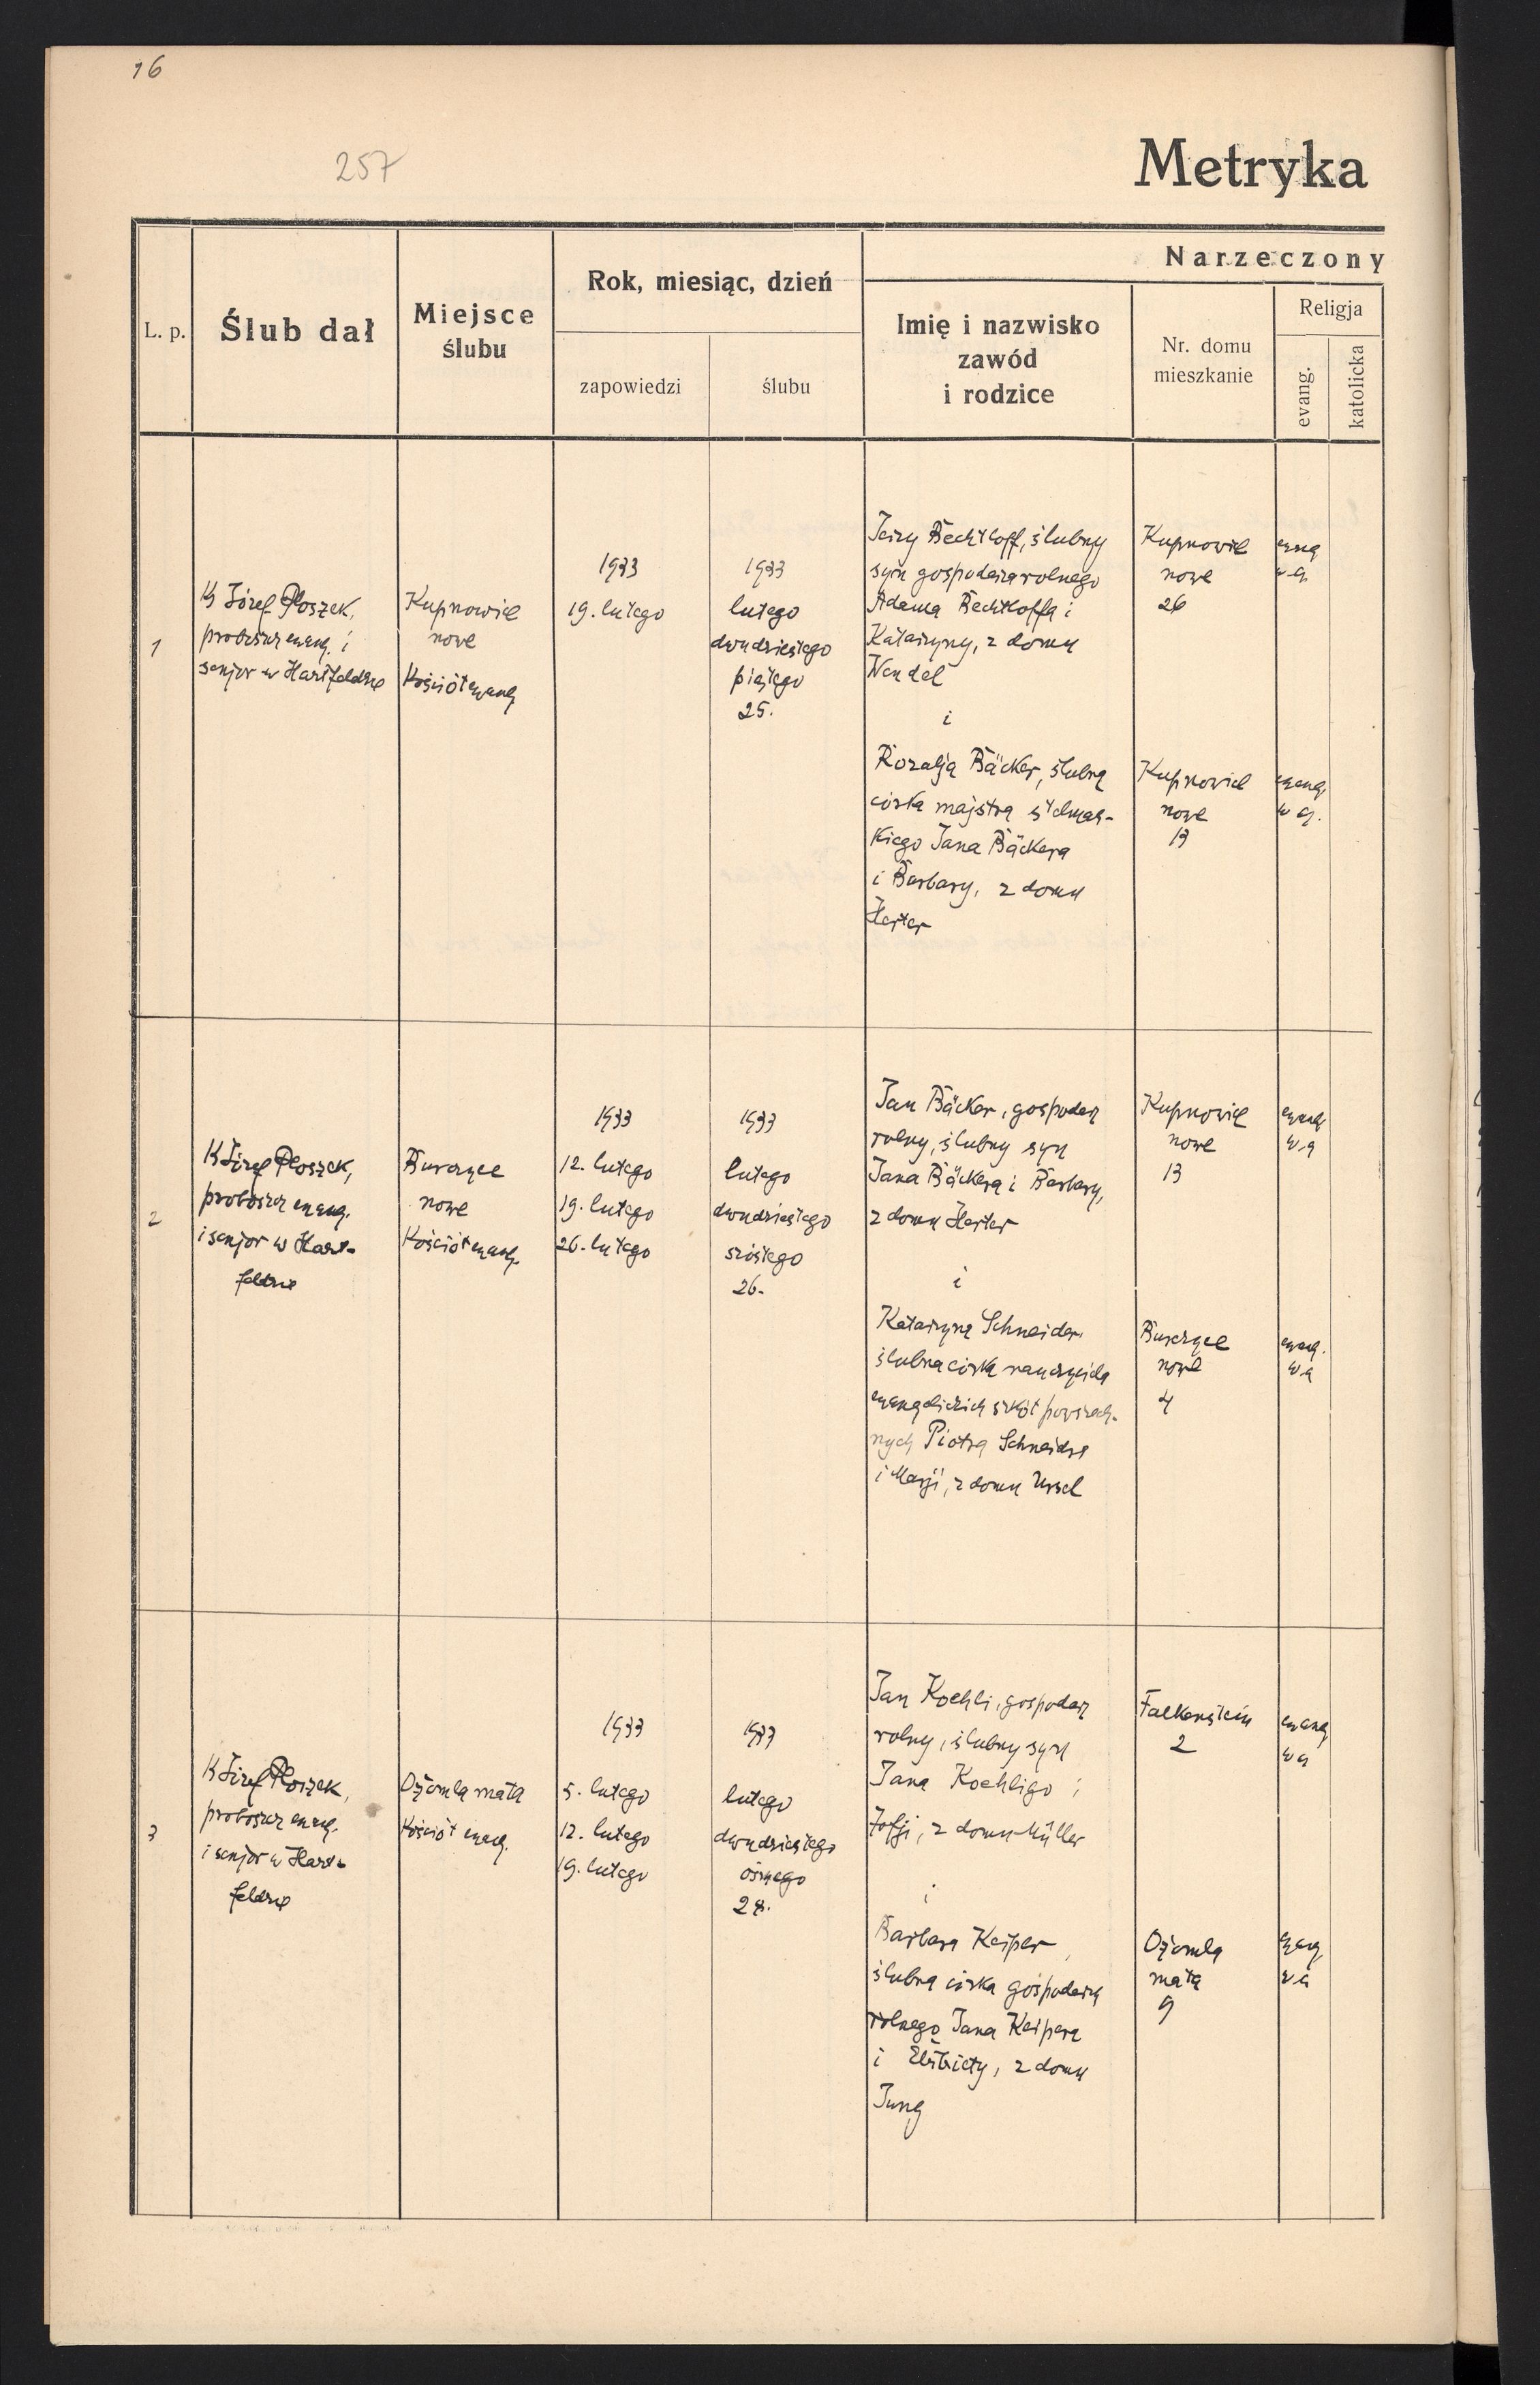 16
257
Metryka
L. p.
Ślub dał
Miejsce
ślubu
Rok, miesiąc, dzień
zapowiedzi
ślubu
Narzeczony
Imię i nazwisko
zawód
i rodzice
Nr. domu
mieszkanie
Religja
evang.
katolicka
1
Ks Józef Płoszek,
proboszcz ewang. i
senjor w Hartfeldzie
Kupnowice
nowe
Kościół ewang
1933
19. lutego
1933
lutego
dwudziestego
piątego
25.
Jerzy Bechtloff, ślubny
syn gospodarza rolnego
Adama Bechtloffa i
Katarzyny, z domu
Wendel
i
Rozalja Bäcker, ślubna
córka majstra stelmas-
kiego Jana Bäckera
i Barbary, z domu
Herter
Kupnowice
nowe
26
ewang
w.a.
Kupnowice
nowe
13
ewang.
w a.
2
Ks Józef Płoszek,
proboszcz ewang.
i senjor w Hart-
feldzie
Burczyce
nowe
Kościół ewang.
1933
12. lutego
19. lutego
26. lutego
1933
lutego
dwudziestego
szóstego
26.
Jan Bäcker, gospodarz
rolny, ślubny syn
Jana Bäckera i Barbary,
z domu Herter
i
Katarzyna Schneider,
ślubna córka nauczyciela
ewangelickich szkół powszech-
nych Piotra Schneidra
i Marji, z domu Ursel
Kupnowice
nowe
13
ewang
w.a
Burczyce
nowe
4
ewang.
w.a
3
Ks Józef Płoszek,
proboszcz ewang.
i senjor w Hart-
feldzie
Ożomla mała
Kościół ewang.
1933
5. lutego
12. lutego
19. lutego
1933
lutego
dwudziestego
ósmego
28.
Jan Koehli, gospodarz
rolny, ślubny syn
Jana Koehligo i
Zofji, z domu Müller
i
Barbara Keiper,
ślubna córka gospodarza
rolnego Jana Keipera
i Elżbiety, z domu
Jung
Falkenstein
2
ewang
w a
Ożomla
mała
9
ewang
w.a